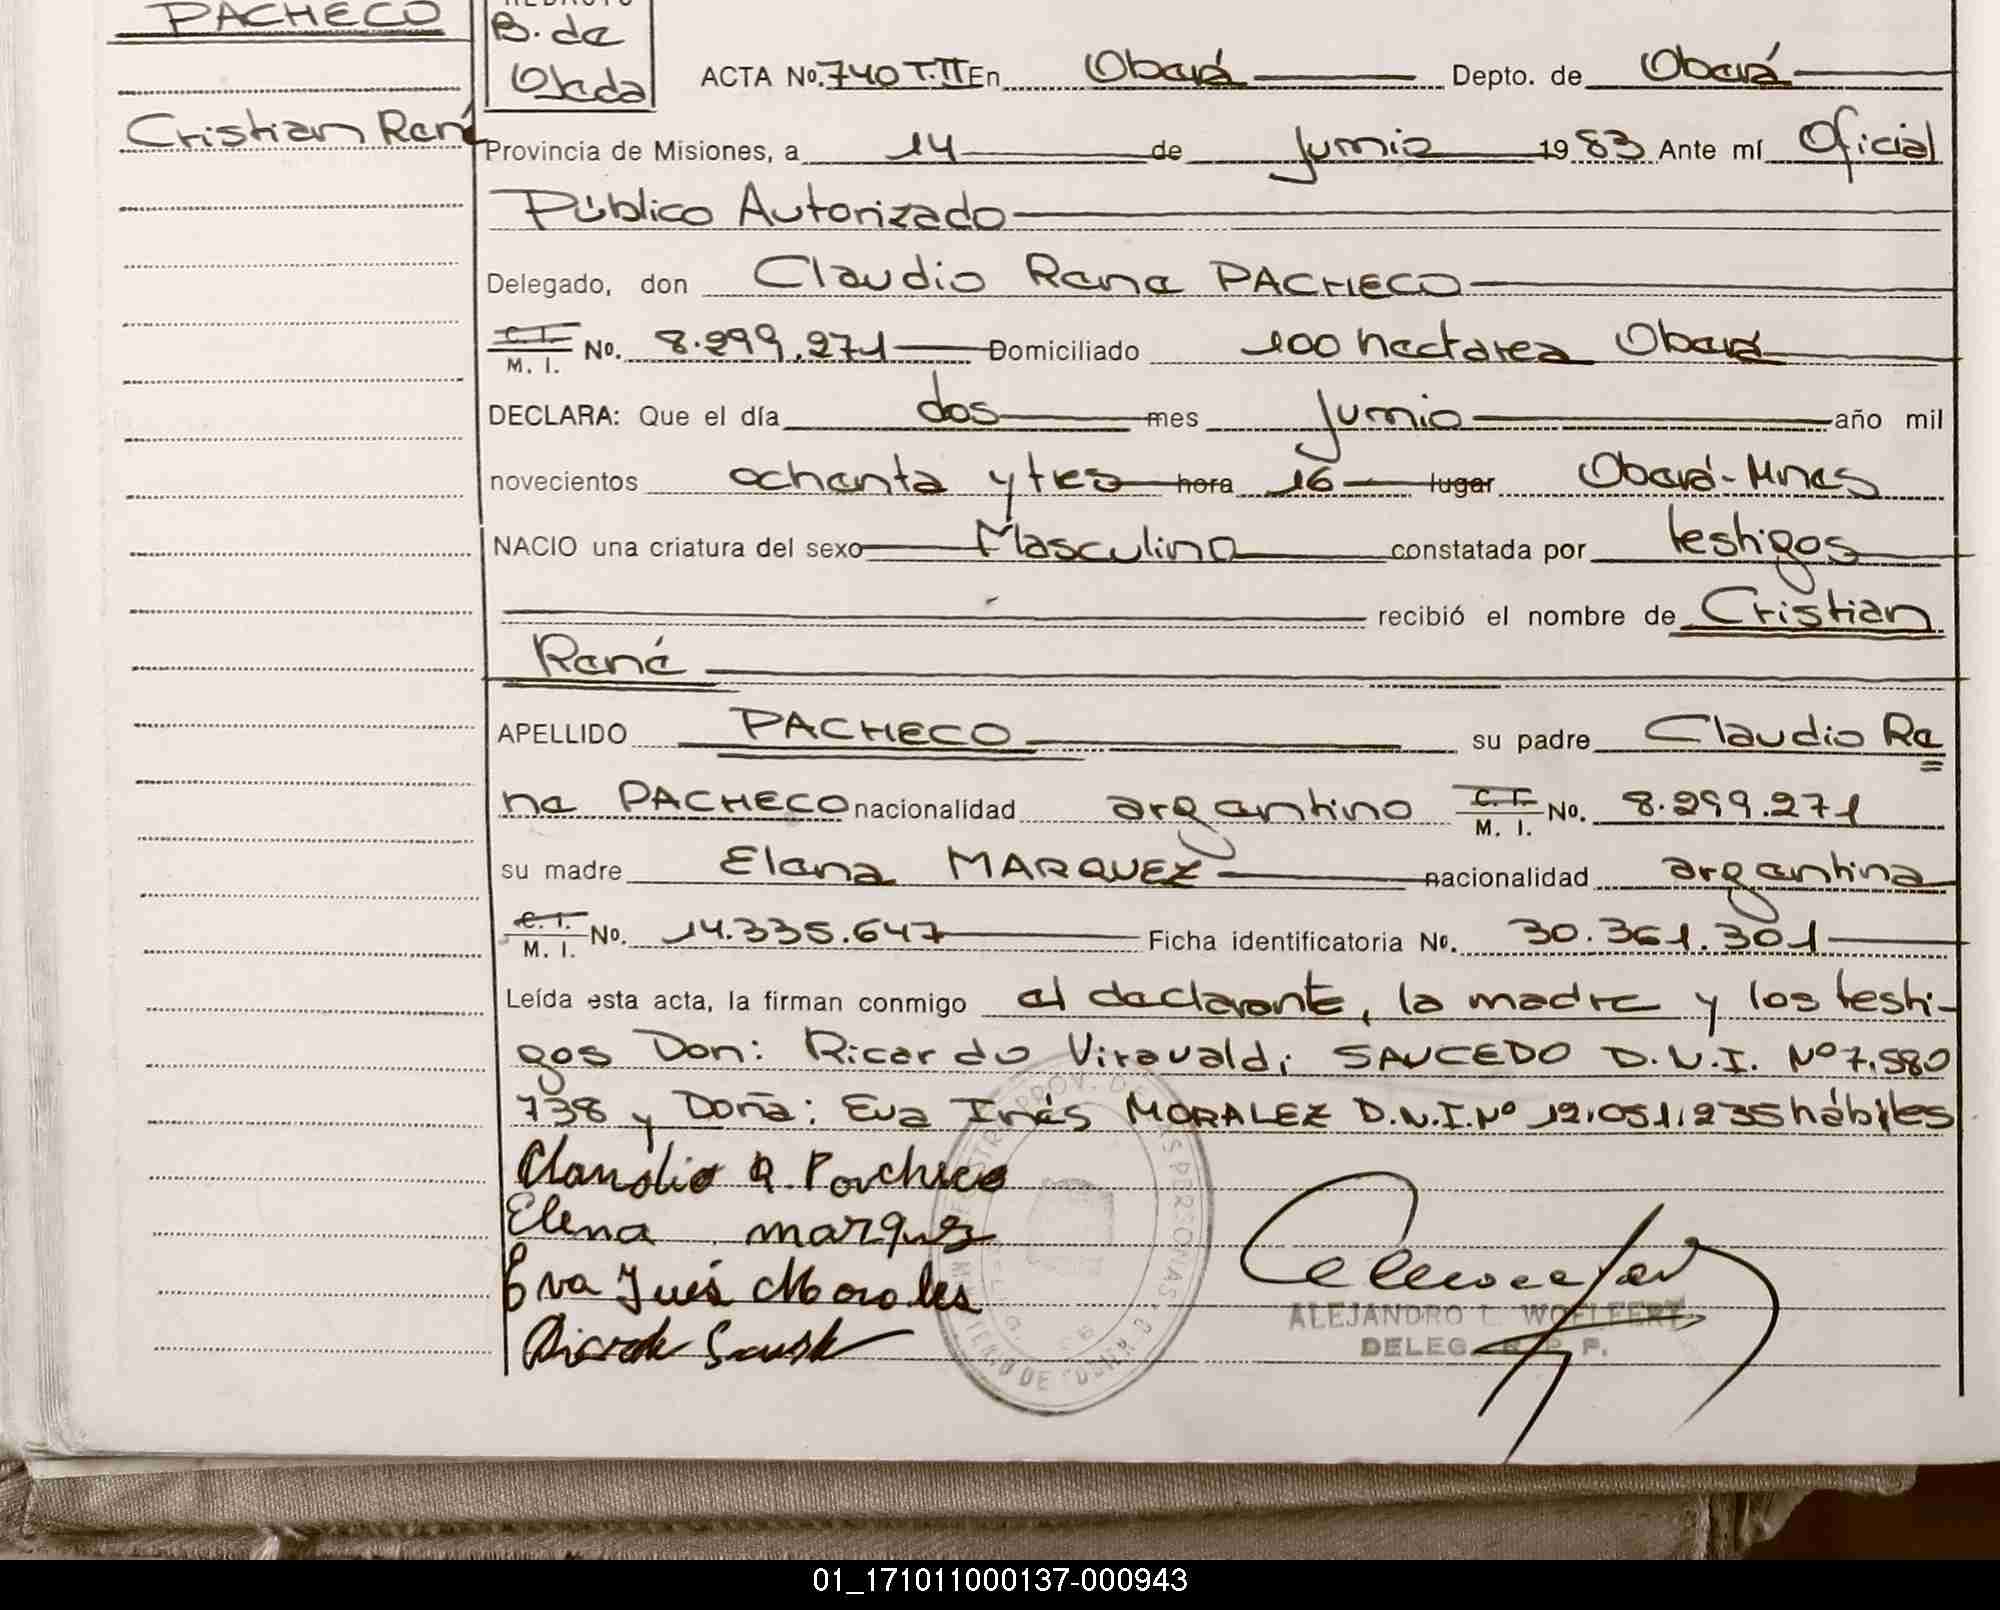 PACHECO
Cristian René
REDACTO
B. de
Ojeda
ACTA Nº. 740 T.II En Oberá Depto. de Oberá
Provincia de Misiones, a 14 de junio 1983 Ante mí Oficial
Público Autorizado
Delegado, don Claudio Rene PACHECO
C. I. / M. I. Nº. 8.299.271 Domiciliado 100 hectarea Oberá
DECLARA: Que el día dos mes junio año mil
novecientos ochenta y tres hora 16 lugar Oberá-Mnes
NACIO una criatura del sexo Masculino constatada por testigos
recibió el nombre de Cristian
René
APELLIDO PACHECO su padre Claudio Re
ne PACHECO nacionalidad argentino C. I. / M. I. Nº. 8.299.271
su madre Elena MARQUEZ nacionalidad argentina
C. I. / M. I. Nº. 14.335.647 Ficha identificatoria Nº. 30.361.301
Leída esta acta, la firman conmigo el declarante, la madre y los testi-
gos Don: Ricardo Viravaldi SAUCEDO D.N.I. Nº 7.580
738 y Doña: Eva Inés MORALEZ D.N.I. Nº 12.051.235 hábiles
Claudio R. Pacheco
Elena marquez
Eva Inés Morales
ALEJANDRO L. WOELFERT
DELEG. R. P. P.
01_171011000137-000943